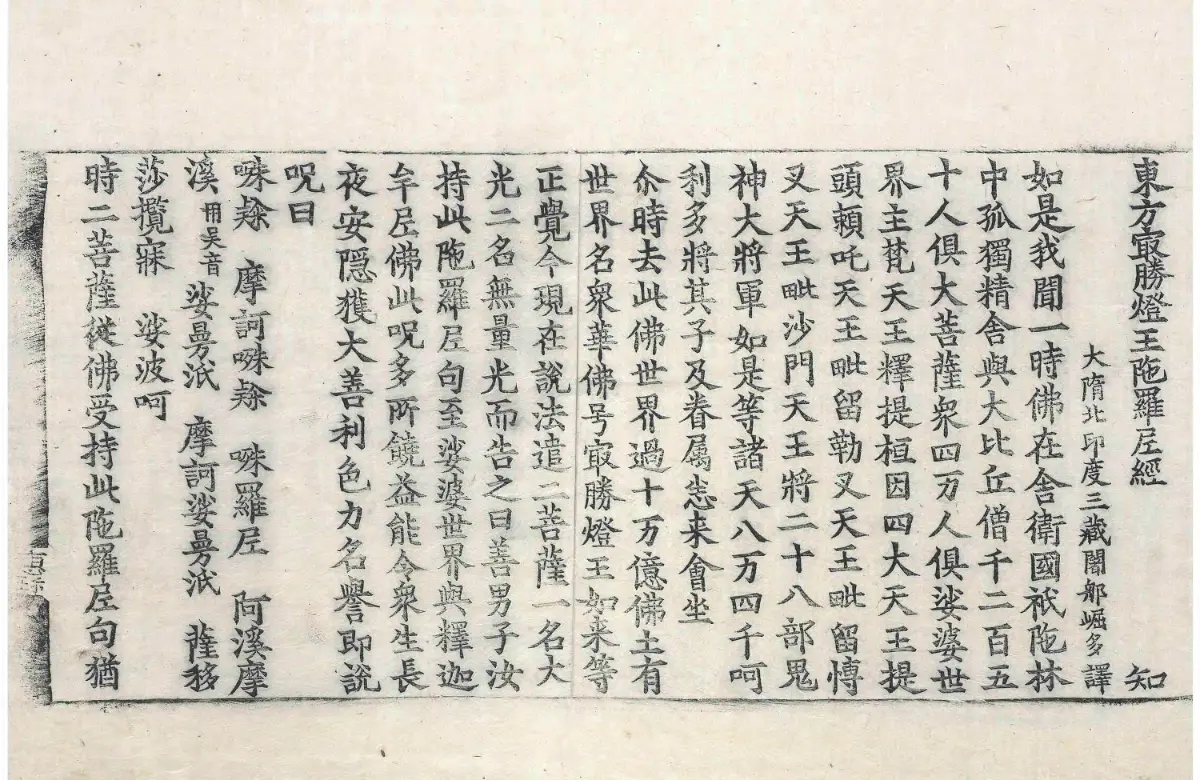 東方㝡勝燈王陁羅尼經 知
大隋北印度三藏闍那崛多譯
如是我聞一時佛在舍衛國祇陁林
中孤獨精舍與大比丘僧千二百五
十人俱大菩薩衆四万人俱娑婆世
界主梵天王釋提桓因四大天王提
頭頼吒天王毗留勒叉天王毗留愽
叉天王毗沙門天王將二十八部鬼
神大將軍如是等諸天八万四千呵
利多將其子及眷属㤀来會坐
尒時去此佛世界過十万億佛土有
世界名衆華佛号㝡勝燈王如来等
正覺今現在說法遣二菩薩一名大
光二名無量光而告之曰善男子汝
持此陁羅尼句至娑婆世界與釋迦
牟尼佛此呪多所饒益能令衆生長
夜安隱獲大善利色力名譽即說
呪曰
㖼𨽻 摩訶㖼𨽻 㖼羅尼 阿溪摩
溪冊吴音 娑曼泜 摩訶娑曼泜 薩移
莎攬寐 娑波呵
時二菩薩從佛受持此陁羅尼句猶